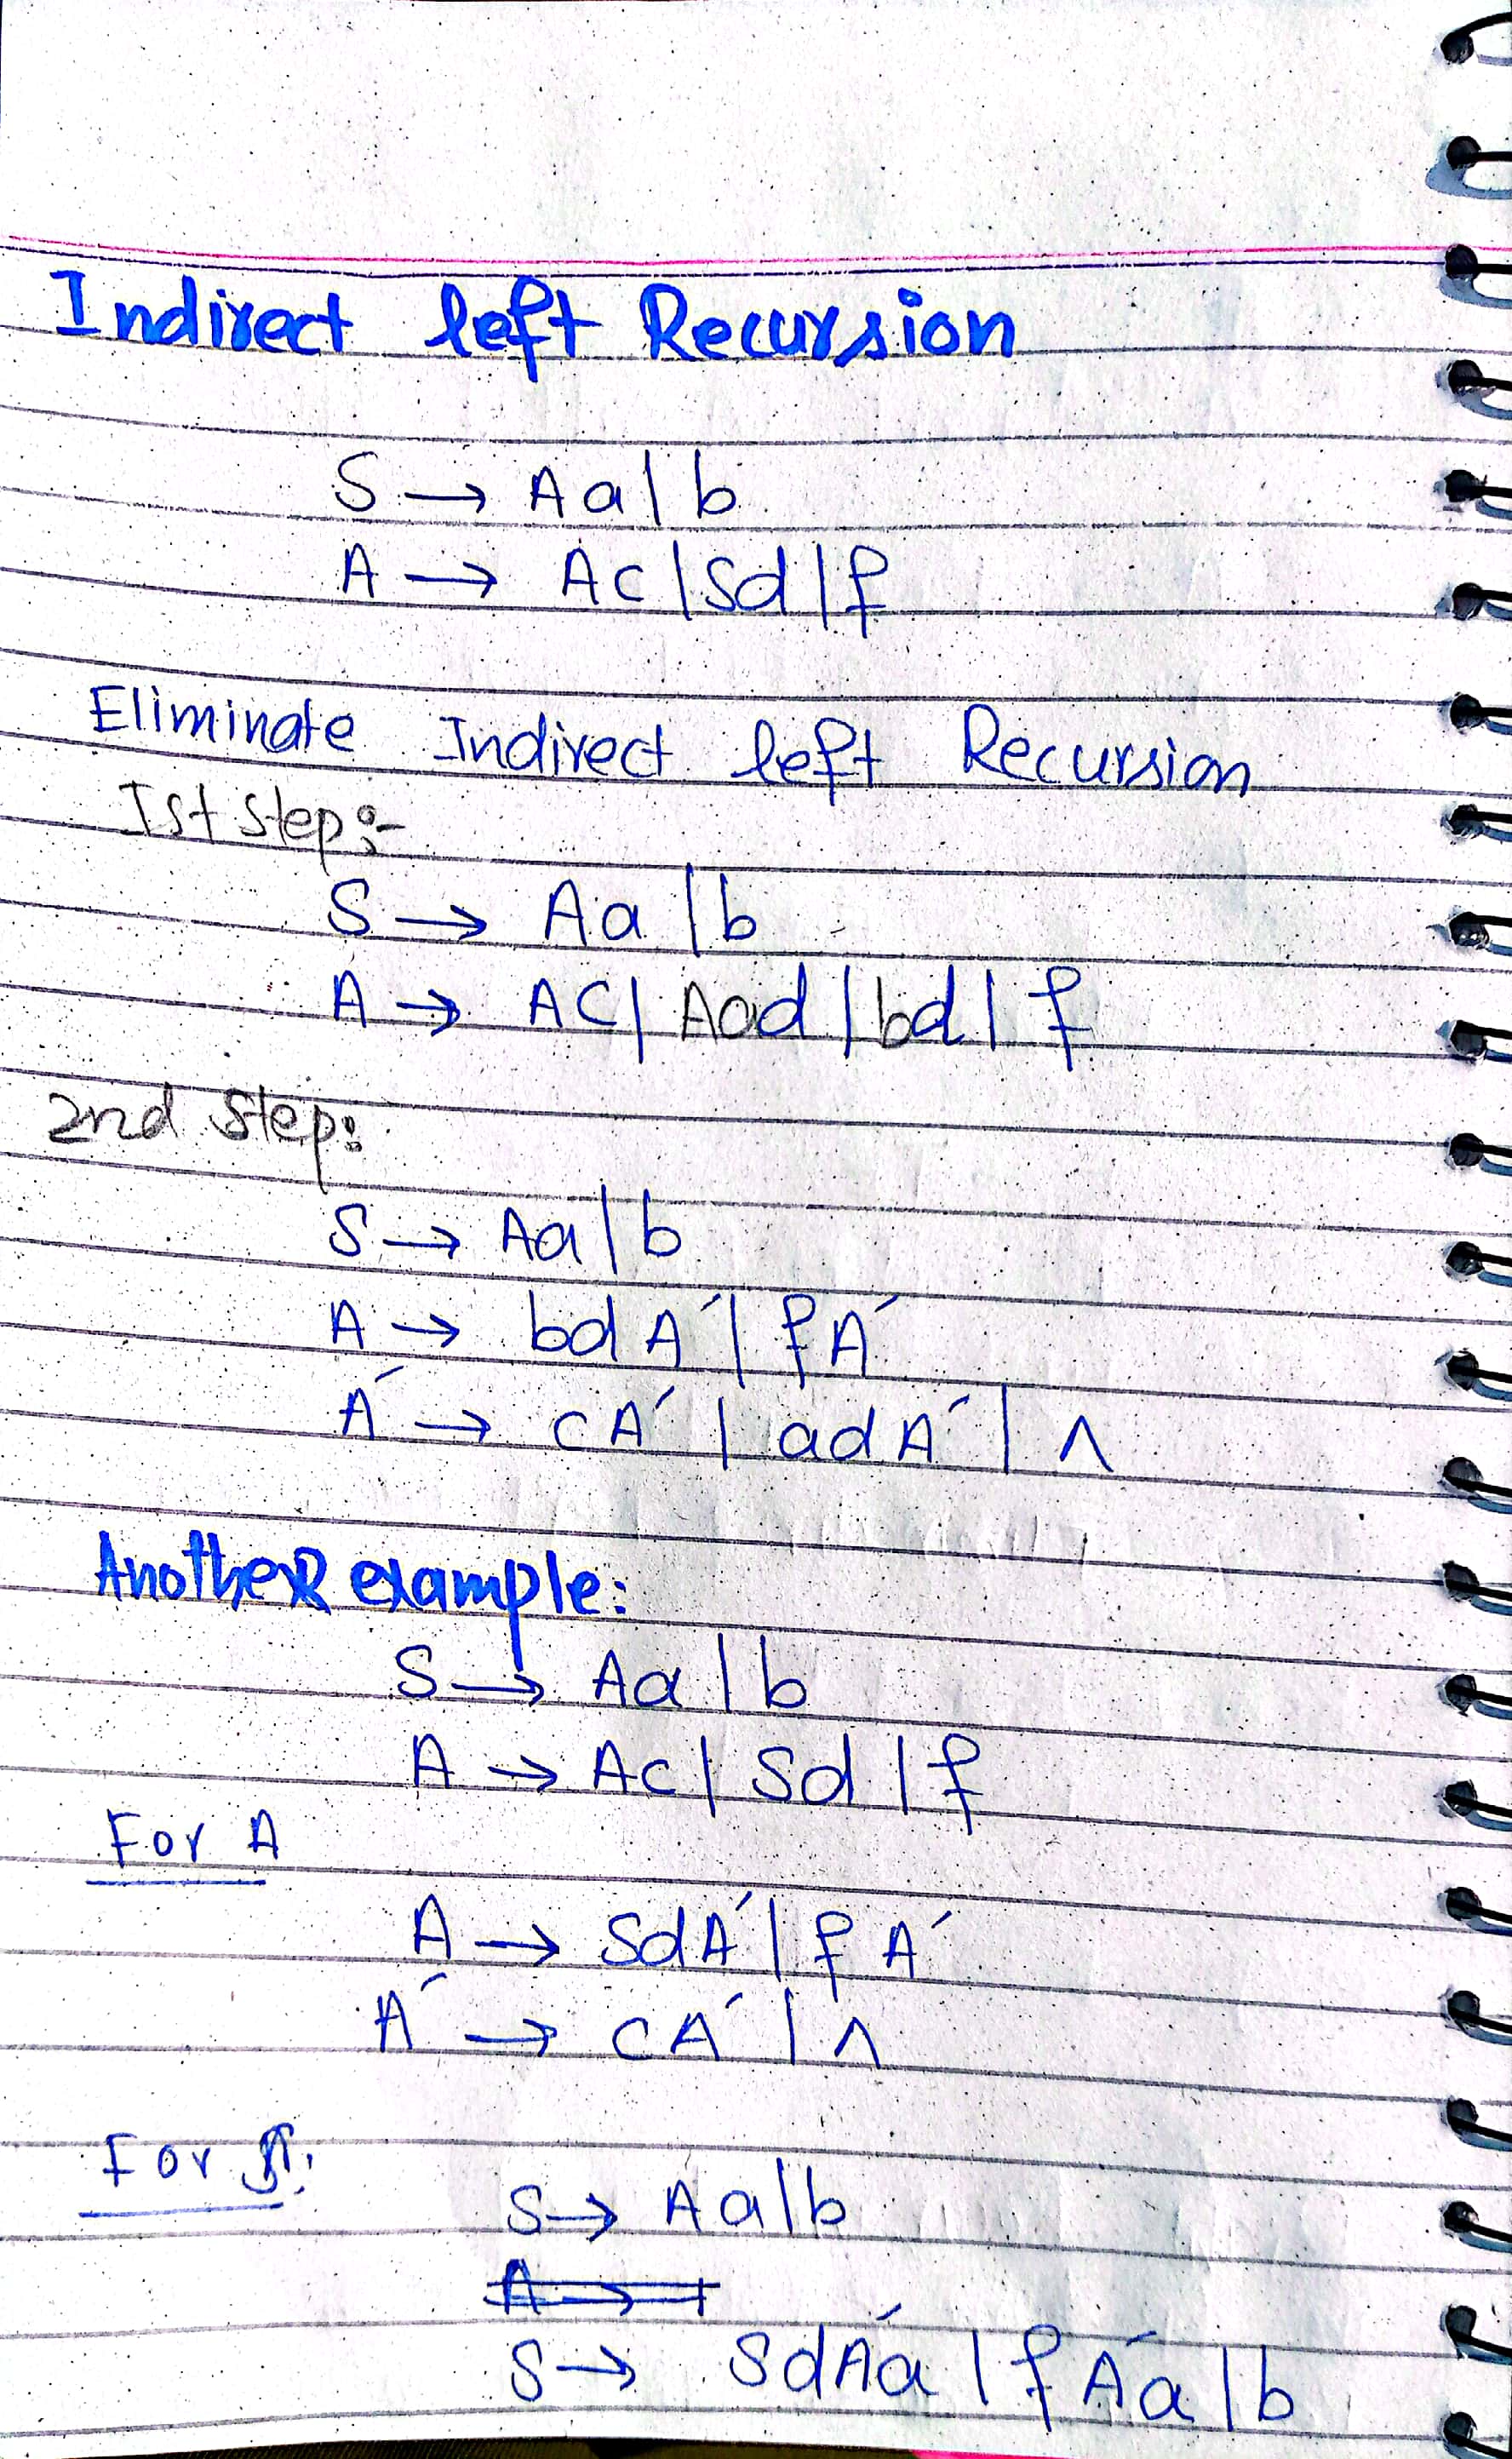 Indirect left Recursion
S → Aa | b
A → Ac | Sd | f
Eliminate Indirect left Recursion
Ist step:-
S → Aa | b
A → AC | Aad | bd | f
2nd Step:
S → Aa | b
A → bdA' | fA'
A' → cA' | adA' | ^
Another example:
S → Aa | b
A → Ac | Sd | f
For A
A → SdA' | fA'
A' → cA' | ^
For S:
S → Aa | b
A →
S → SdA'a | fA'a | b